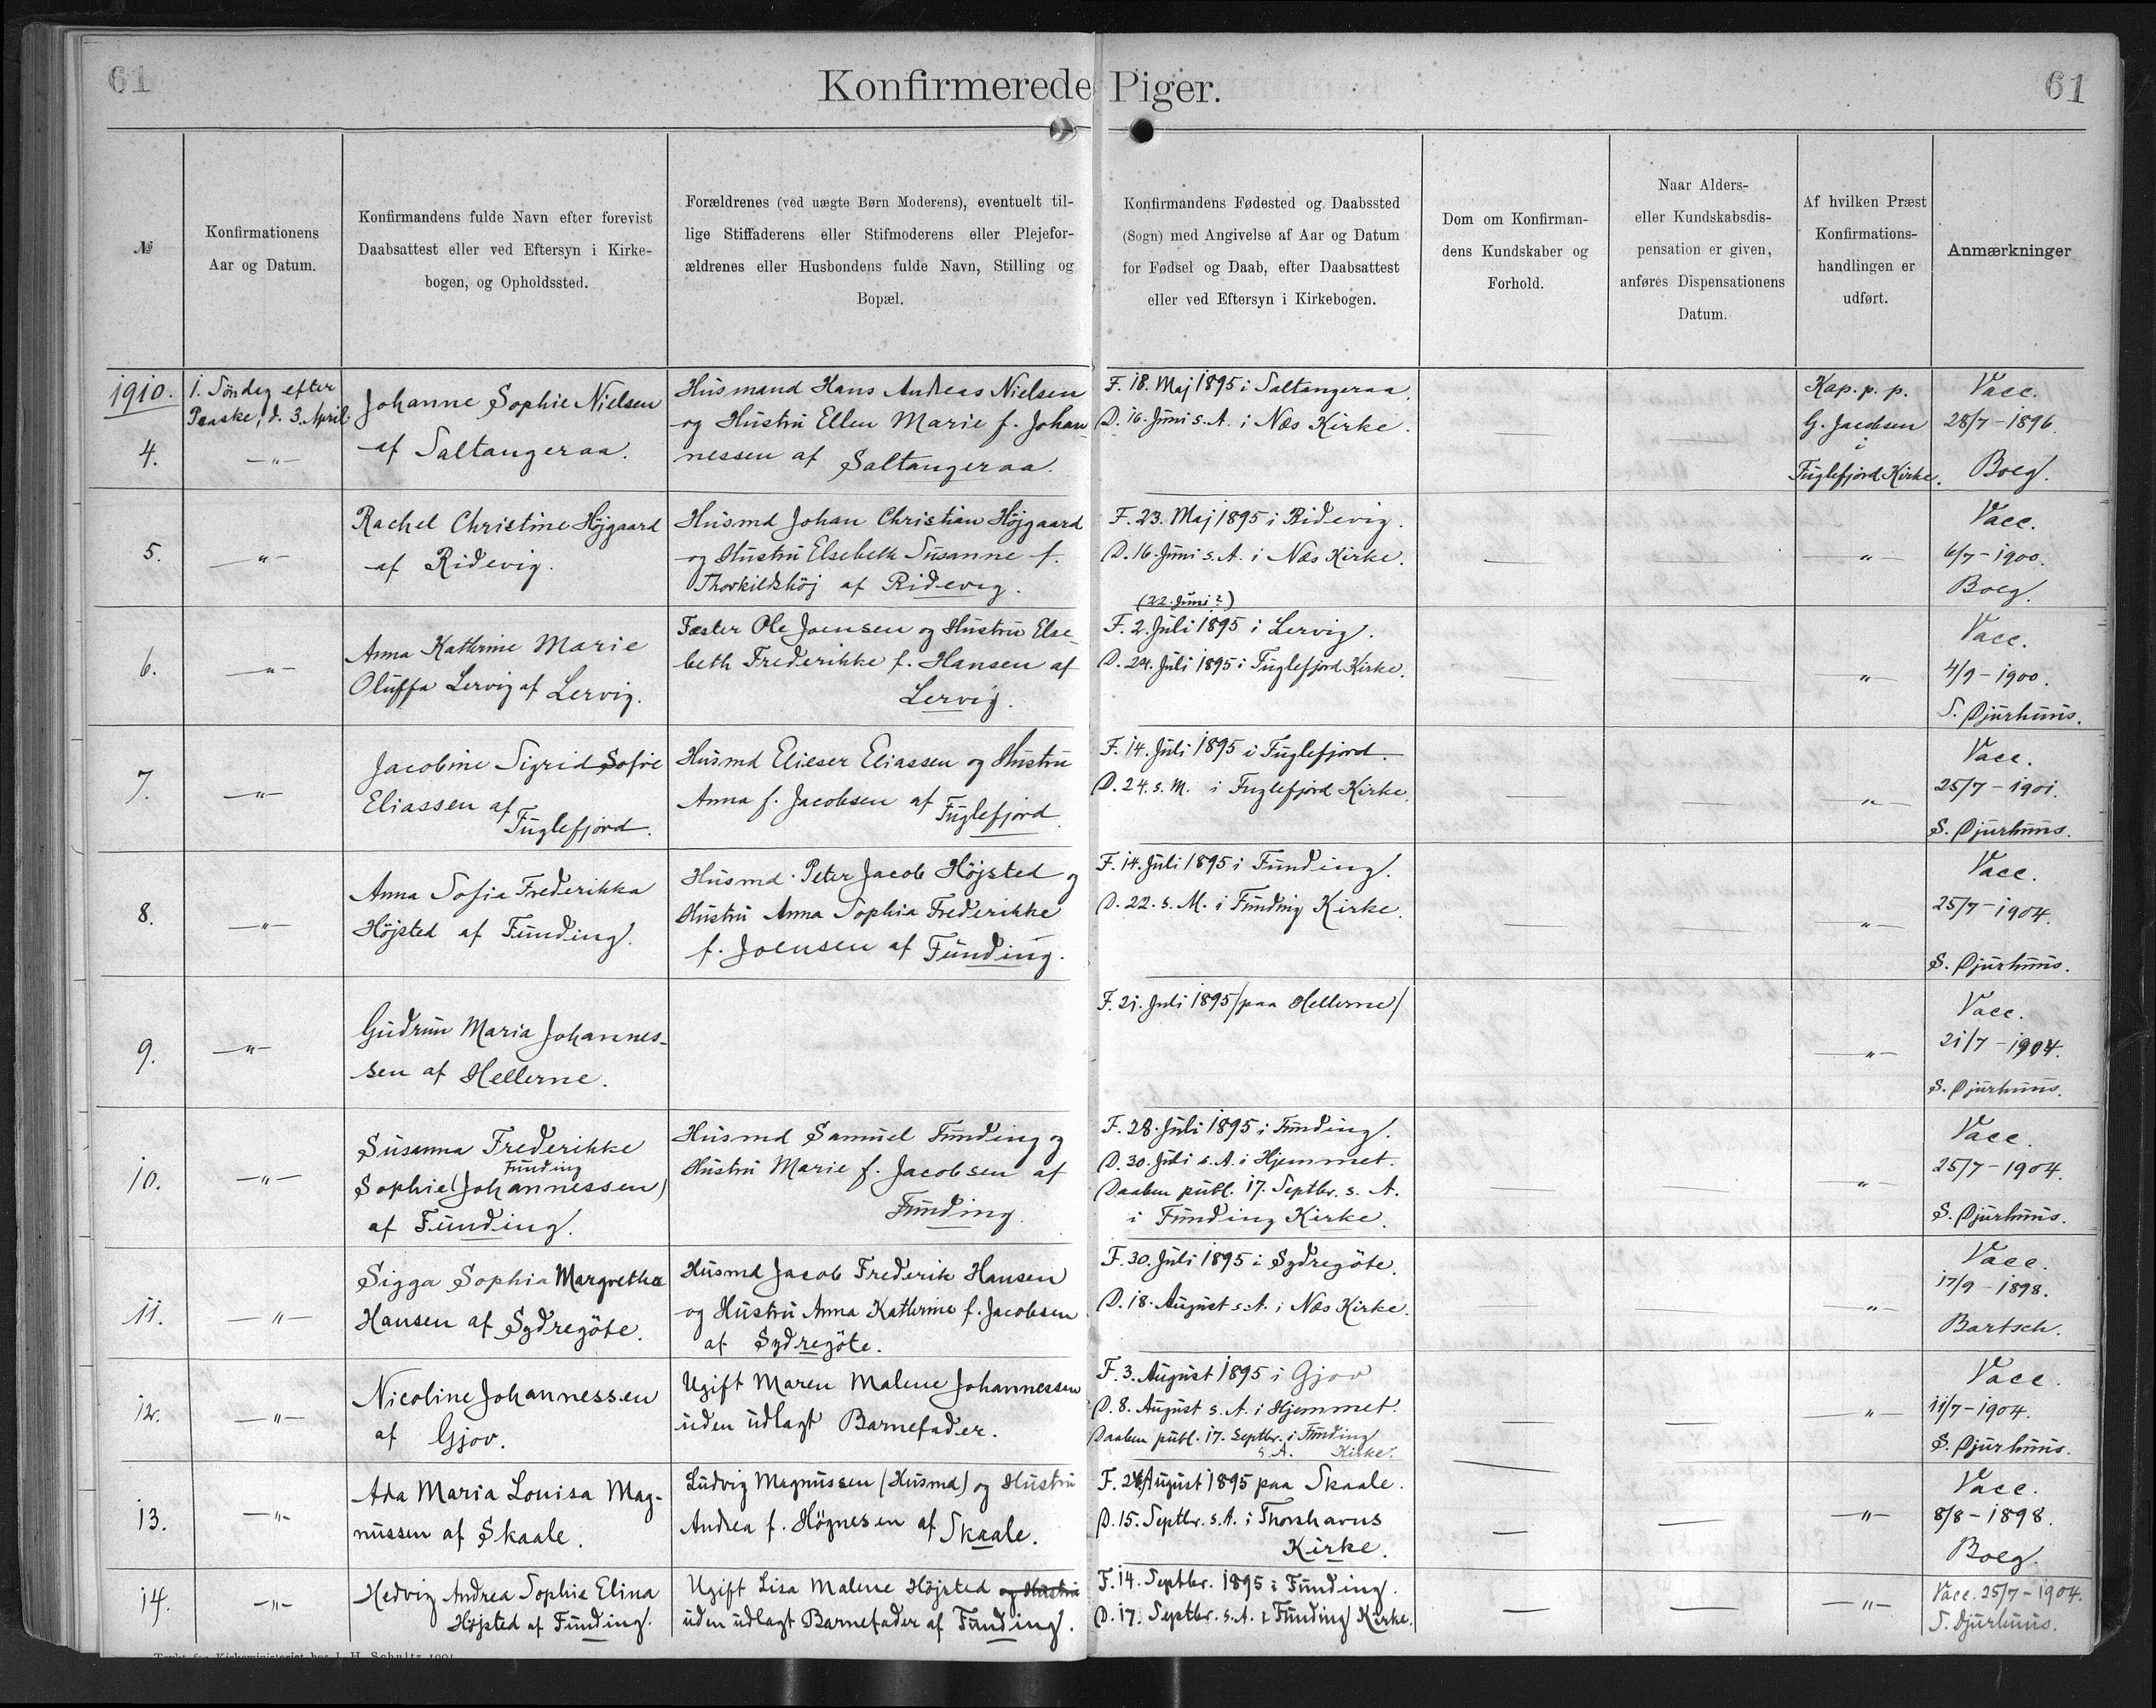 61
Konfirmerede Piger.
61
№
Konfirmationens
Aar og Datum.
Konfirmandens fulde Navn efter forevist
Daabsattest eller ved Eftersyn i Kirke-
bogen, og Opholdssted.
Forældrenes (ved uægte Børn Moderens), eventuelt til-
lige Stiffaderens eller Stifmoderens eller Plejefor-
ældrenes eller Husbondens fulde Navn, Stilling og
Bopæl.
Konfirmandens Fødested og Daabssted
(Sogn) med Angivelse af Aar og Datum
for Fødsel og Daab, efter Daabsattest
eller ved Eftersyn i Kirkebogen.
Dom om Konfirman-
dens Kundskaber og
Forhold.
Naar Alders-
eller Kundskabsdis-
pensation er given,
anføres Dispensationens
Datum.
Af hvilken Præst
Konfirmations-
handlingen er
udført.
Anmærkninger
1910.
4.
1. Söndag efter
Paaske, d. 3. April.
—"—
Johanne Sophie Nielsen
af Saltangeraa.
Husmand Hans Andreas Nielsen
og Hustru Ellen Marie f. Johan-
nessen af Saltangeraa.
F. 18. Maj 1895 i Saltangeraa.
D. 16. Juni s. A. i Næs Kirke.
—
—
Kap. p. p.
G. Jacobsen
i
Fuglefjord Kirke.
Vacc.
28/7 - 1896.
Boeg.
5.
—"—
Rachel Christine Højgaard
af Ridevig.
Husmd Johan Christian Højgaard
og Hustru Elsebeth Susanne f.
Thorkildshöj af Ridevig.
F. 23. Maj 1895 i Ridevig.
D. 16. Juni s. A. i Næs Kirke.
—
—
—"—
Vacc.
6/7 - 1900.
Boeg.
6.
—"—
Anna Kathrine Marie
Oluffa Lervig af Lervig.
Fæster Ole Joensen og Hustru Else-
beth Frederikke f. Hansen af
Lervig.
(22. Juni?)
F. 2. Juli 1895 i Lervig.
D. 24. Juli 1895 i Fuglefjord Kirke.
—
—
—"—
Vacc.
4/9 - 1900.
S. Djurhuus.
7.
—"—
Jacobine Sigrid Sofie
Eliassen af
Fuglefjord.
Husmd Elieser Eliassen og Hustru
Anna f. Jacobsen af Fuglefjord.
F. 14. Juli 1895 i Fuglefjord.
D. 24. s. M. i Fuglefjord Kirke.
—
—
—"—
Vacc.
25/7 - 1901.
S. Djurhuus.
8.
—"—
Anna Sofia Frederikka
Höjsted af Funding.
Husmd. Peter Jacob Höjsted og
Hustru Anna Sophia Frederikke
f. Joensen af Funding.
F. 14. Juli 1895 i Funding.
D. 22. s. M. i Funding Kirke.
—
—
—"—
Vacc.
25/7 - 1904.
S. Djurhuus.
9.
—"—
Gudrun Maria Johannes-
sen af Hellerne.
F. 21. Juli 1895 (paa Hellerne)
—"—
Vacc.
21/7 - 1904.
S. Djurhuus.
10.
—"—
Susanna Frederikke
Funding
Sophie (Johannessen)
af Funding.
Husmd Samuel Funding og
Hustru Marie f. Jacobsen af
Funding.
F. 28. Juli 1895 i Funding.
D. 30. Juli s. A. i Hjemmet.
Daaben publ. 17. Septbr. s. A.
i Funding Kirke.
—
—
—"—
Vacc.
25/7 - 1904.
S. Djurhuus.
11.
—"—
Sigga Sophia Margretha
Hansen af Sydregöte.
Husmd Jacob Frederik Hansen
og Hustru Anna Kathrine f. Jacobsen
af Sydregöte.
F. 30. Juli 1895 i Sydregöte.
D. 18. August s. A. i Næs Kirke.
—"—
Vacc.
17/9 - 1898.
Bartsch.
12.
—"—
Nicoline Johannessen
af Gjov.
Ugift Maren Malene Johannessen
uden udlagt Barnefader.
F. 3. August 1895 i Gjov
D. 8. August s. A. i Hjemmet.
Daaben publ. 17. Septbr. i Funding
s. A. Kirke.
—
—
—"—
Vacc.
11/7 - 1904.
S. Djurhuus.
13.
—"—
Ada Maria Louisa Mag-
nussen af Skaale.
Ludvig Magnussen (Husmd) og Hustru
Andrea f. Högnesen af Skaale.
F. August 1895 paa Skaale.
D. 15. Septbr. s. A. i Thorshavns
Kirke.
—
—
—"—
Vacc.
8/8 - 1898.
Boeg.
14.
—"—
Hedvig Andrea Sophie Elina
Höjsted af Funding.
Ugift Lisa Malene Höjsted og Hustru
uden udlagt Barnefader af Funding.
F. 14. Septbr. 1895 i Funding.
D. 17. Septbr. s. A. i Funding Kirke.
—
—
—"—
Vacc. 25/7 - 1904.
S. Djurhuus.